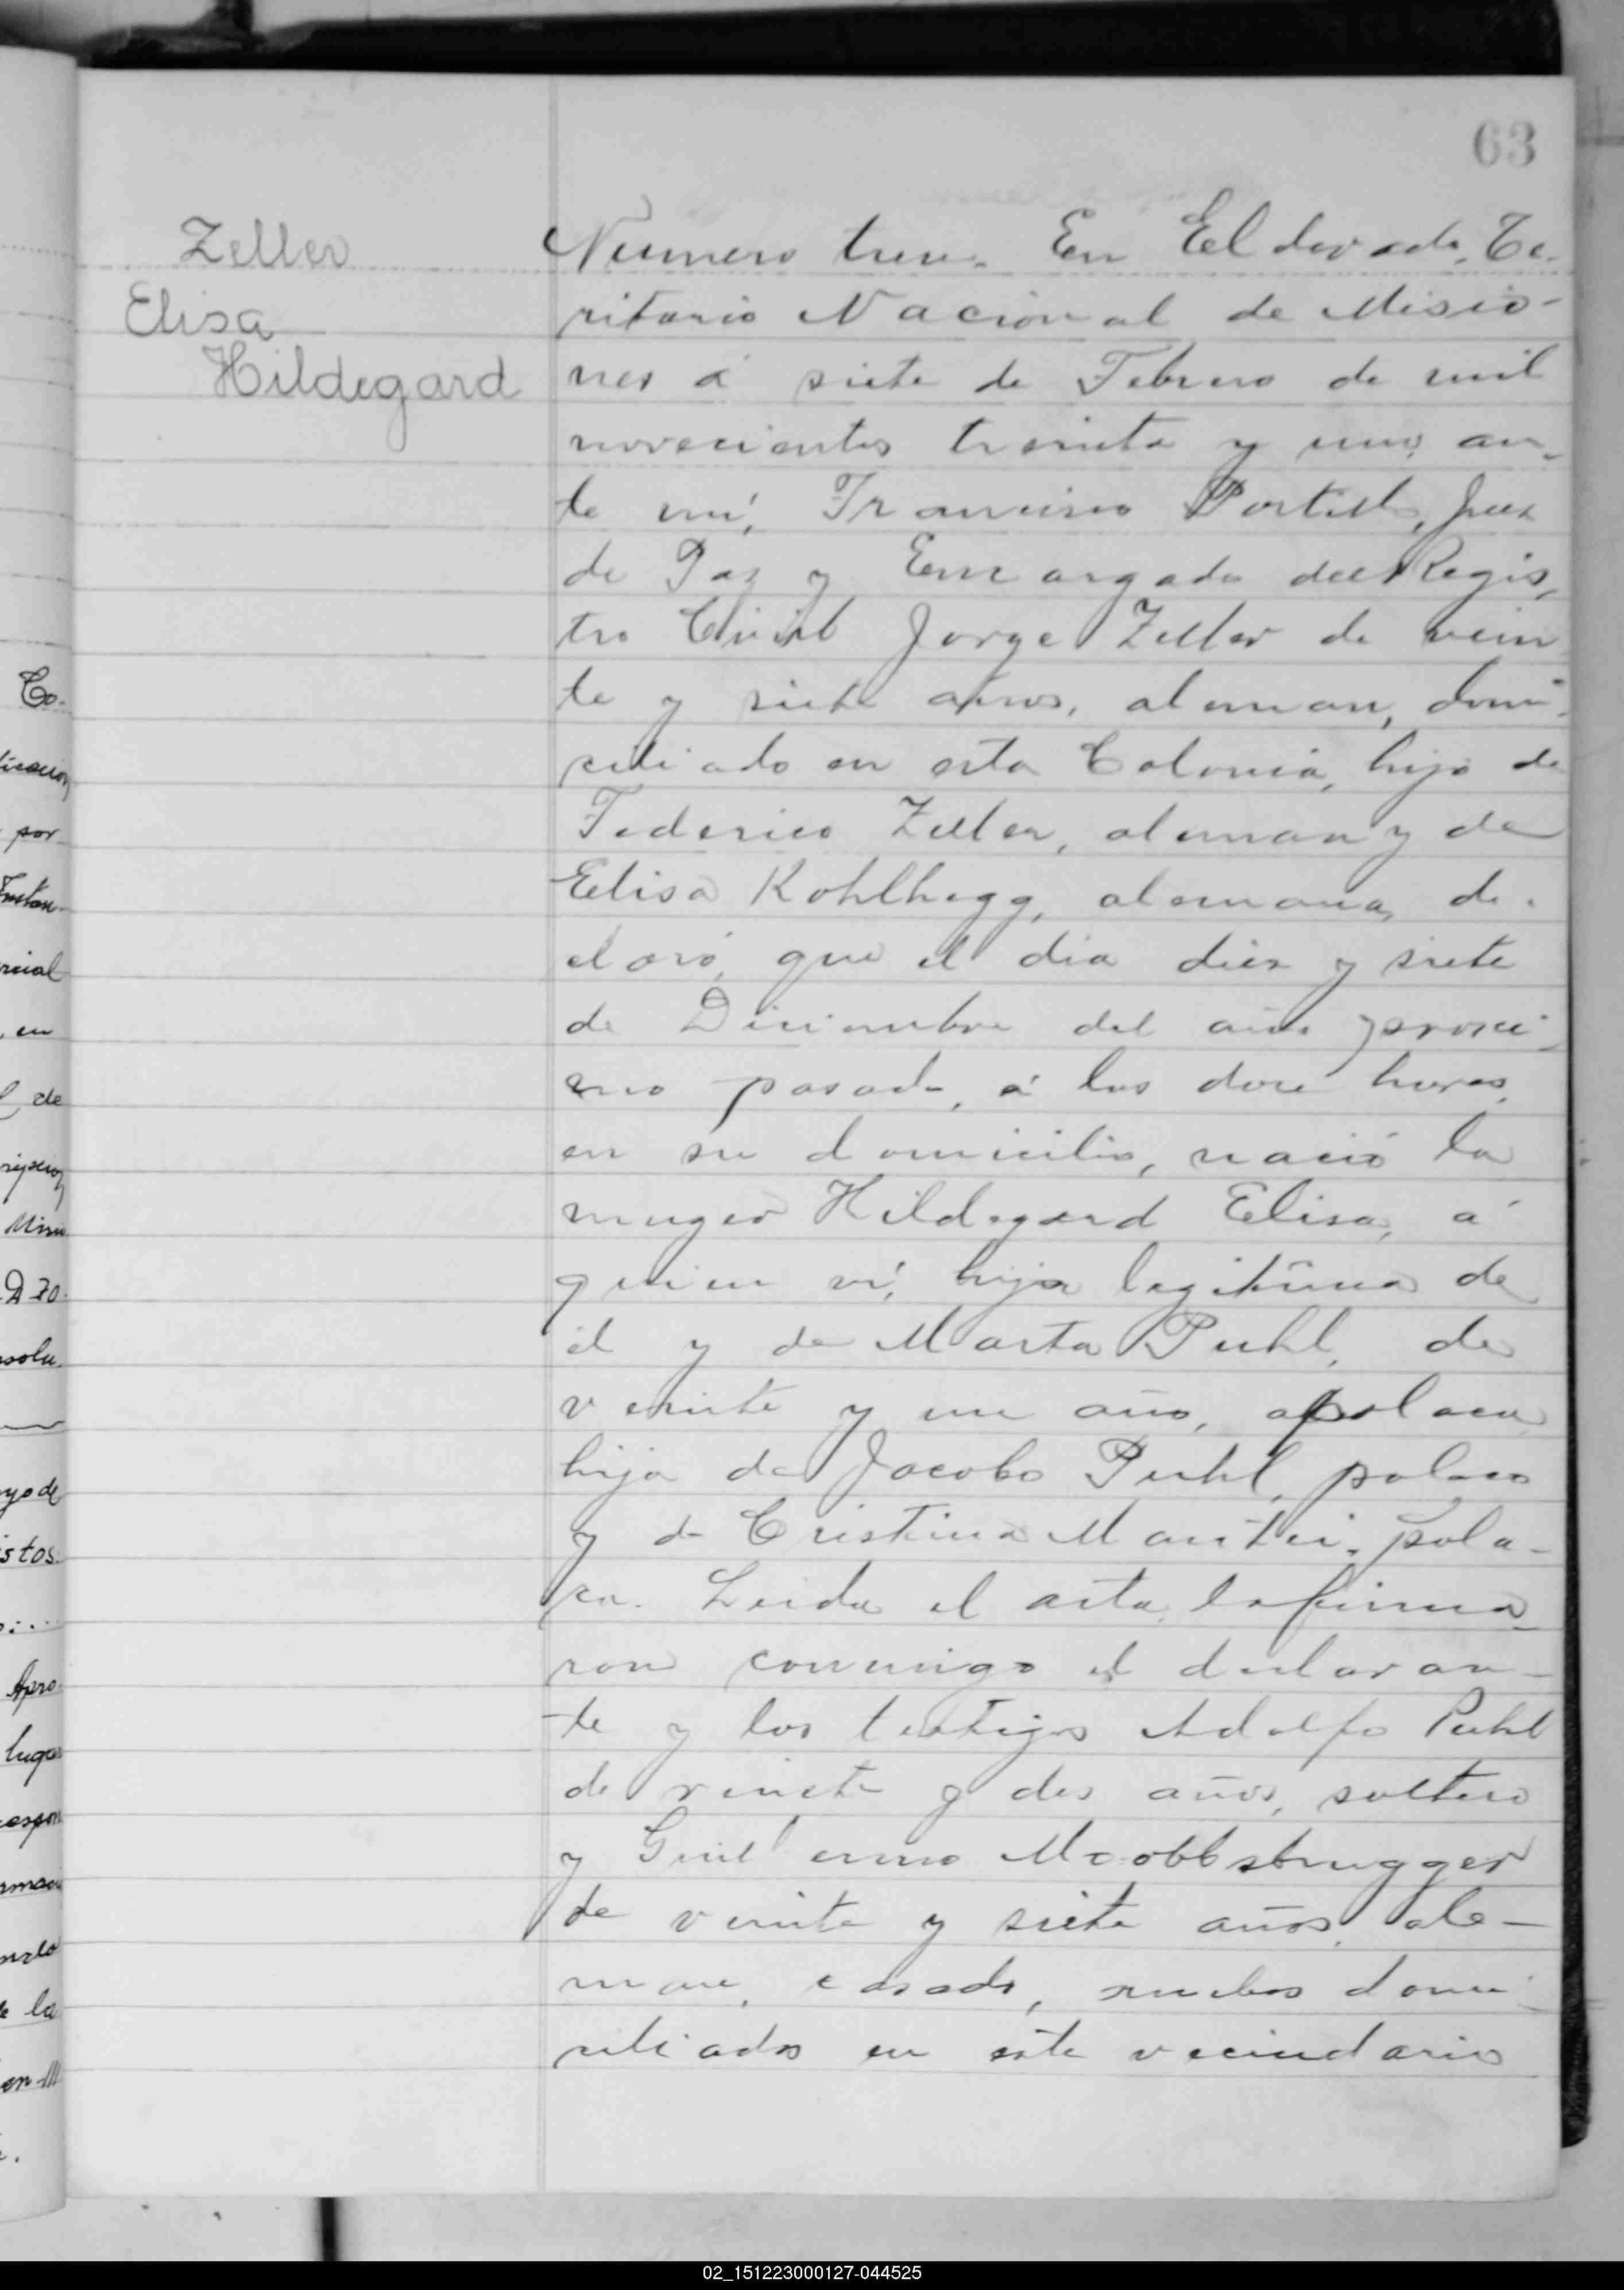 63
Zeller
Elisa
Hildegard
Numero trece. En Eldorado, Te-
ritorio Nacional de Misio-
nes á siete de Febrero de mil
novecientos treinta y uno, an-
te mí, Francisco Portillo, Juez
de Paz y Encargado del Regis-
tro Civil Jorge Zeller de vein
te y siete años, aleman, domi-
ciliado en esta Colonia, hijo de
Federico Zeller, aleman y de
Elisa Kohlhegg, alemana, de-
claró, que el dia diez y siete
de Diciembre del año proxi-
mo pasado, á las doce horas,
en su domicilio, nació la
muger Hildegard Elisa, á
quien ví, hija legitima de
él y de Marta Puhl, de
veinte y un año, polaca
hija de Jacobo Puhl, polaco
y de Cristina Mantei, pola-
ca. Leida el acta, la firma-
ron conmigo el declaran-
te y los testigos Adolfo Puhl
de veinte y dos años, soltero
y Guillermo
de veinte y siete años, ale-
man, casado, ambos domi-
ciliados en este vecindario
Co-
licacion
por
rcial
en
de
ripcion
D 30.
solu-
yo de
stos.
Apro-
lugar
la
en
02_151223000127-044525